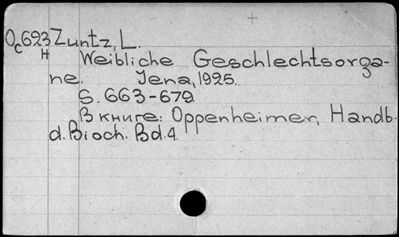 Oc623 Zuntz, L.
H Weibliche Geschlechtsorga-
ne. Jena, 1925.
S. 663-679.
В книге: Oppenheimer, Handb.
d. Bioch. Bd. 4.